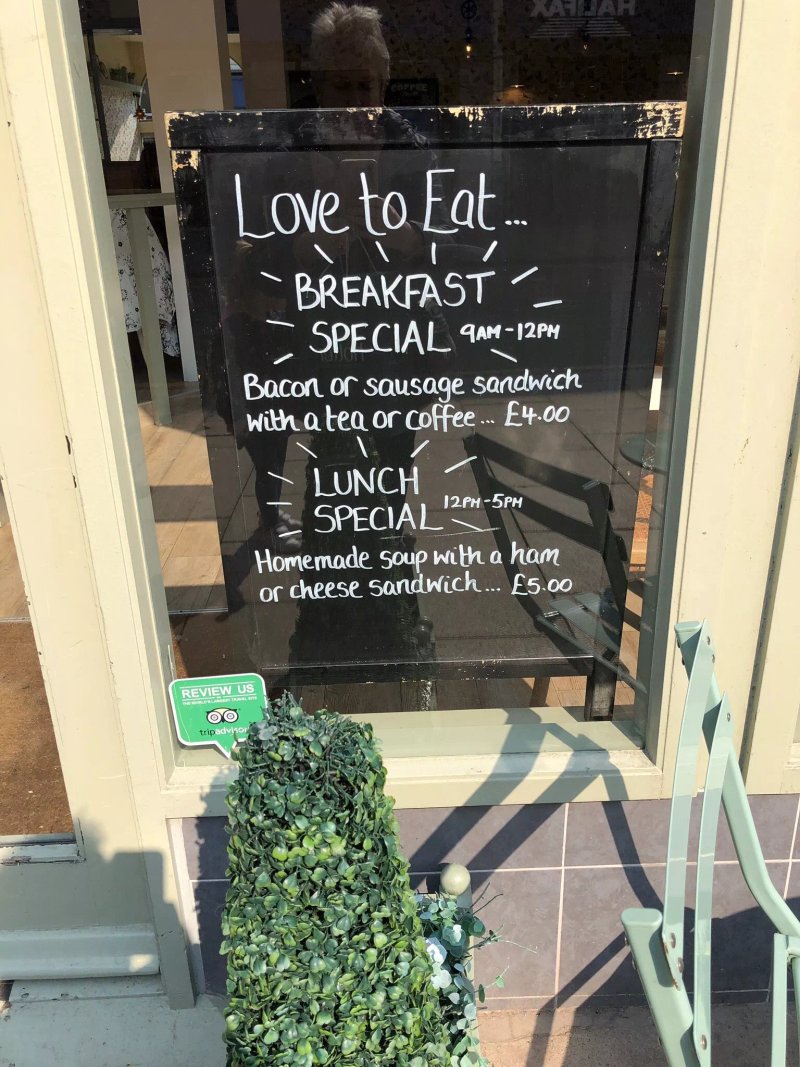 HALIFAX
COFFEE
Love to Eat...
BREAKFAST
SPECIAL 9AM-12PM
Bacon or sausage sandwich
with a tea or coffee... £4.00
LUNCH
SPECIAL 12PM-5PM
Homemade soup with a ham
or cheese sandwich... £5.00
REVIEW US
ON
THE WORLD'S LARGEST TRAVEL SITE
tripadvisor